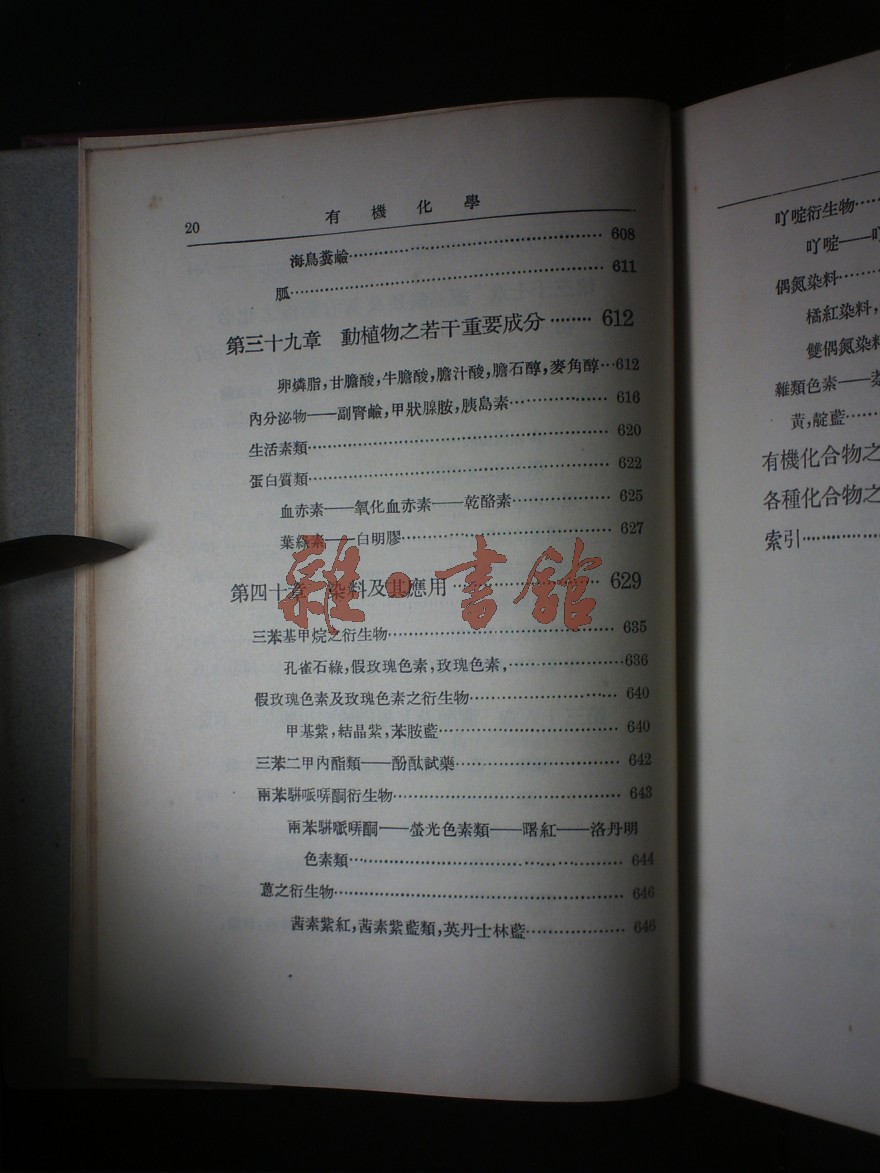 20 有機化學
海鳥糞鹼 608
胍 611
第三十九章 動植物之若干重要成分 612
卵燐脂,甘膽酸,牛膽酸,膽汁酸,膽石醇,麥角醇 612
內分泌物——副腎鹼,甲狀腺胺,胰島素 616
生活素類 620
蛋白質類 622
血赤素——氧化血赤素——乾酪素 625
葉綠素——白明膠 627
第四十章 染料及其應用 629
三苯基甲烷之衍生物 635
孔雀石綠,假玫瑰色素,玫瑰色素, 636
假玫瑰色素及玫瑰色素之衍生物 640
甲基紫,結晶紫,苯胺藍 640
三苯二甲內酯類——酚酞試藥 642
兩苯駢哌哢酮衍生物 643
兩苯駢哌哢酮——螢光色素類——曙紅——洛丹明
色素類 644
蒽之衍生物 646
茜素紫紅,茜素紫藍類,英丹士林藍 646
雜·書館
吖啶衍生物
吖啶——
偶氮染料
橘紅染料,
雙偶氮染料
雜類色素——
黃,靛藍
有機化合物之
各種化合物之
索引